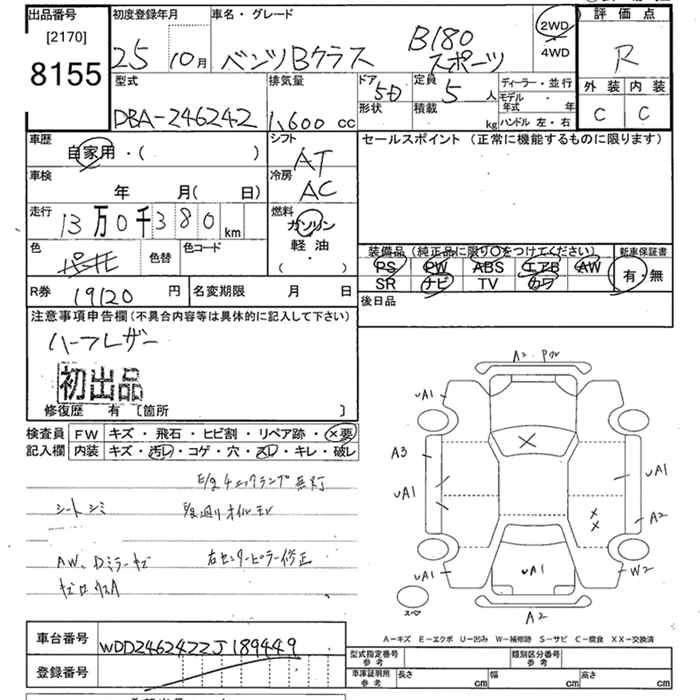 出品番号
[2170]
8155
初度登録年月
25 10月
車名・グレード
ベンツBクラス B180
スポーツ
2WD
4WD
評価点
R
外装 内装
C C
型式
DBA-246242
排気量
1,600 cc
ドア
5D
形状
定員
5 人
積載
kg
ディーラー・並行
モデル・年式 年
ハンドル 左・右
車歴
自家用・( )
シフト
AT
セールスポイント (正常に機能するものに限ります)
車検
年 月( 日)
冷房
AC
走行
13万0千380km
燃料
ガソリン
軽油
( ・ )
色
色替
色コード
装備品(純正品に限り○をつけてください)
PS PW ABS エアB AW
SR ナビ TV カワ
新車保証書
有・無
後日品
R券
19120円
名変期限 月 日
注意事項申告欄(不具合内容等は具体的に記入して下さい)
ハーフレザー
初出品
修復歴 有 [箇所 ]
検査員
記入欄
FW キズ・飛石・ヒビ割・リペア跡・×要
内装 キズ・汚レ・コゲ・穴・スレ・キレ・破レ
E/gチェックランプ点灯
シートシミ
オイルモレ
AW、Dミラーキズ
右センターピラー修正
A2
UA1
A3
UA1
UA1
UA1
A2
UA1
UA1
W2
A2
スペア
A－キズ E－エクボ U－凹み W－補修跡 S－サビ C－腐食 XX－交換済
車台番号
WDD2462422J189449
登録番号
型式指定番号
参考
類別区分番号
参考
車庫証明用
参考
長さ cm
幅 cm
高さ cm